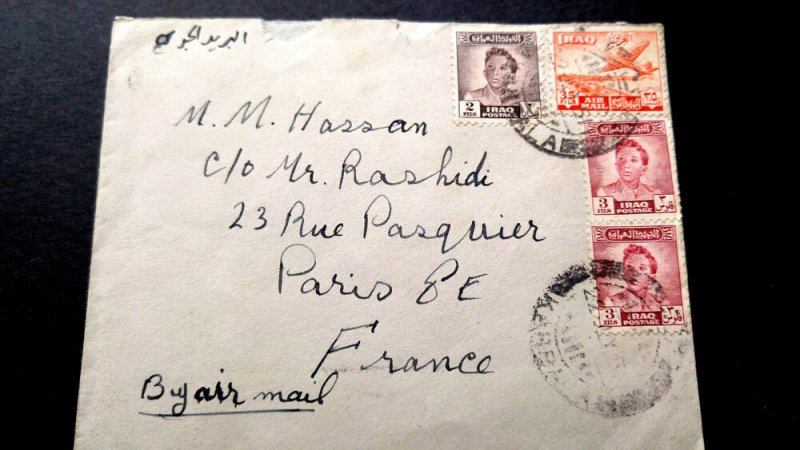 البريد الجوي
M. M. Hassan
c/o Mr. Rashidi
23 Rue Pasquier
Paris 8E
France
By air mail
2
FILS
IRAQ
POSTAGE
IRAQ
35
FILS
AIR
MAIL
٣٥
3
FILS
IRAQ
POSTAGE
٣
فلوس
3
FILS
IRAQ
POSTAGE
٣
فلوس